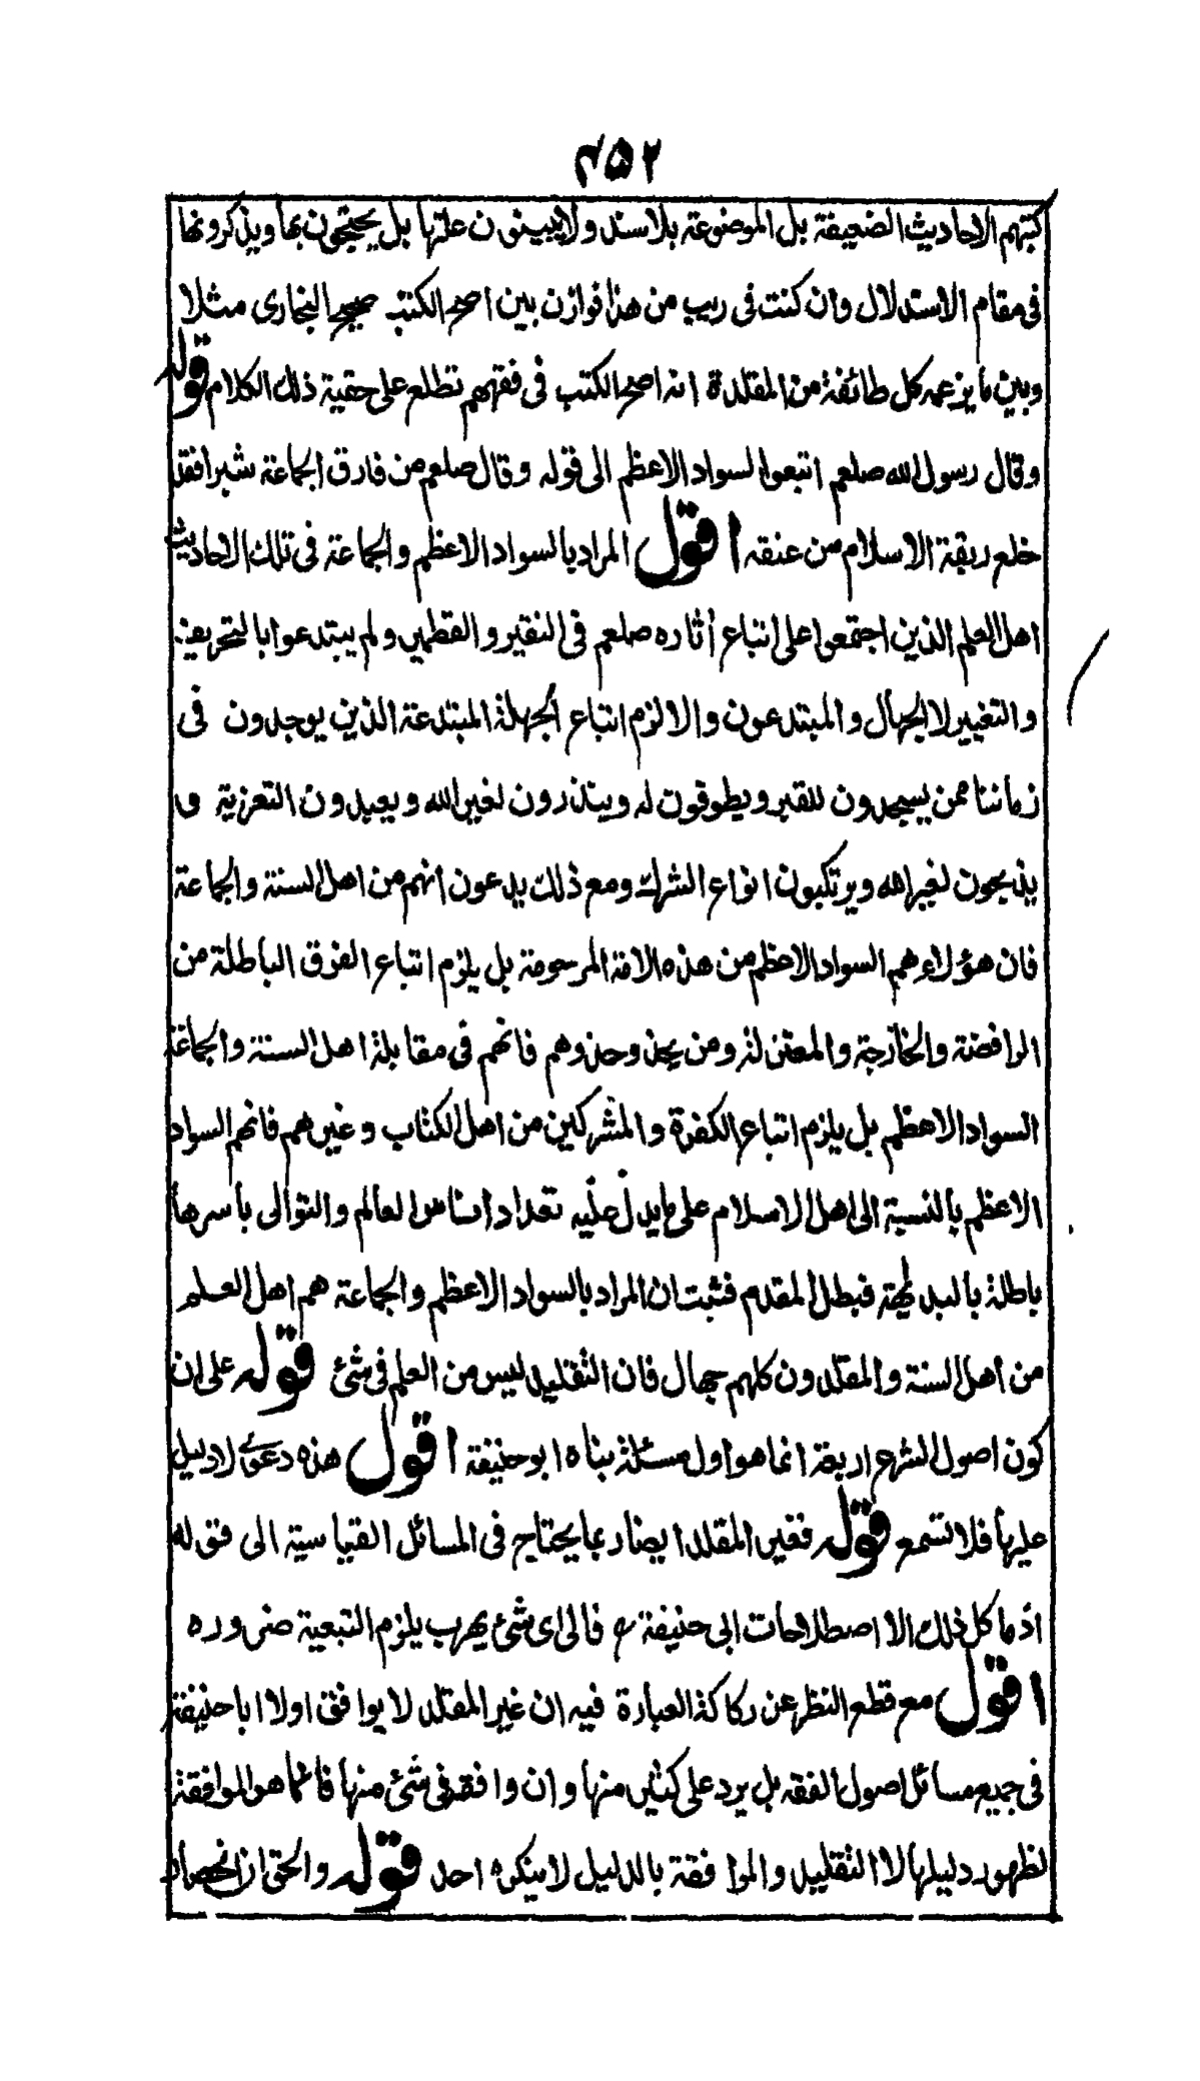 ۴۵۲
كتبهم الاحاديث الضعيفة بل الموضوعة بلاسند ولايبينون علتها بل يحتجون بها ويذكرونها
فى مقام الاستدلال وان كنت فى ريب من هذا فوازن بين اصح الكتب صحيح البخارى مثلا
وبين ما يزعمه كل طائفة من المقلدة انه اصح الكتب فى فقههم تطلع على حقية ذلك الكلام قوله
وقال رسول الله صلعم اتبعوا السواد الاعظم الى قوله وقال صلعم من فارق الجماعة شبرا فقد
خلع ربقة الاسلام من عنقه اقول المراد بالسواد الاعظم والجماعة فى تلك الاحاديث
اهل العلم الذين اجتمعوا على اتباع أثاره صلعم فى النقير والقطمير ولم يبتدعوا بالتحريف
والتغيير لا الجهال والمبتدعون والا لزم اتباع الجهلة المبتدعة الذين يوجدون فى
زماننا ممن يسجدون للقبر ويطوفون له وينذرون لغير الله ويعبدون التعزية و
يذبحون لغير الله ويرتكبون انواع الشرك ومع ذلك يدعون انهم من اهل السنة والجماعة
فان هؤلاء هم السواد الاعظم من هذه الامة المرحومة بل يلزم اتباع الفرق الباطلة من
الرافضة والخارجة والمعتزلة ومن يحذو حذوهم فانهم فى مقابلة اهل السنة والجماعة
السواد الاعظم بل يلزم اتباع الكفرة والمشركين من اهل الكتاب وغيرهم فانهم السواد
الاعظم بالنسبة الى اهل الاسلام على مايدل عليه تعداد اناس العالم والتوالى بأسرها
باطلة بالبداهة فبطل المقدم فثبت ان المراد بالسواد الاعظم والجماعة هم اهل العلم
من اهل السنة والمقلدون كلهم جهال فان التقليد ليس من العلم فى شئ قوله على ان
كون اصول الشرع اربعة انما هو اول مسئلة بناه ابو حنيفة اقول هذه دعوى لادليل
عليها فلا تسمع قوله فغير المقلد ايضا ربما يحتاج فى المسائل القياسية الى قوله
اذ ما كل ذلك الا اصطلاحات ابى حنيفة رح فالى اى شئ يهرب يلزم التبعية ضروره
اقول مع قطع النظر عن ركاكة العبارة فيه ان غير المقلد لا يوافق اولا ابا حنيفة
فى جميع مسائل اصول الفقه بل يرد على كثير منها وان وافقه فى شئ منها فانما هو الموافقة
لظهور دليلها لا التقليد والموافقة بالدليل لاينكره احد قوله والحق ان انحصار